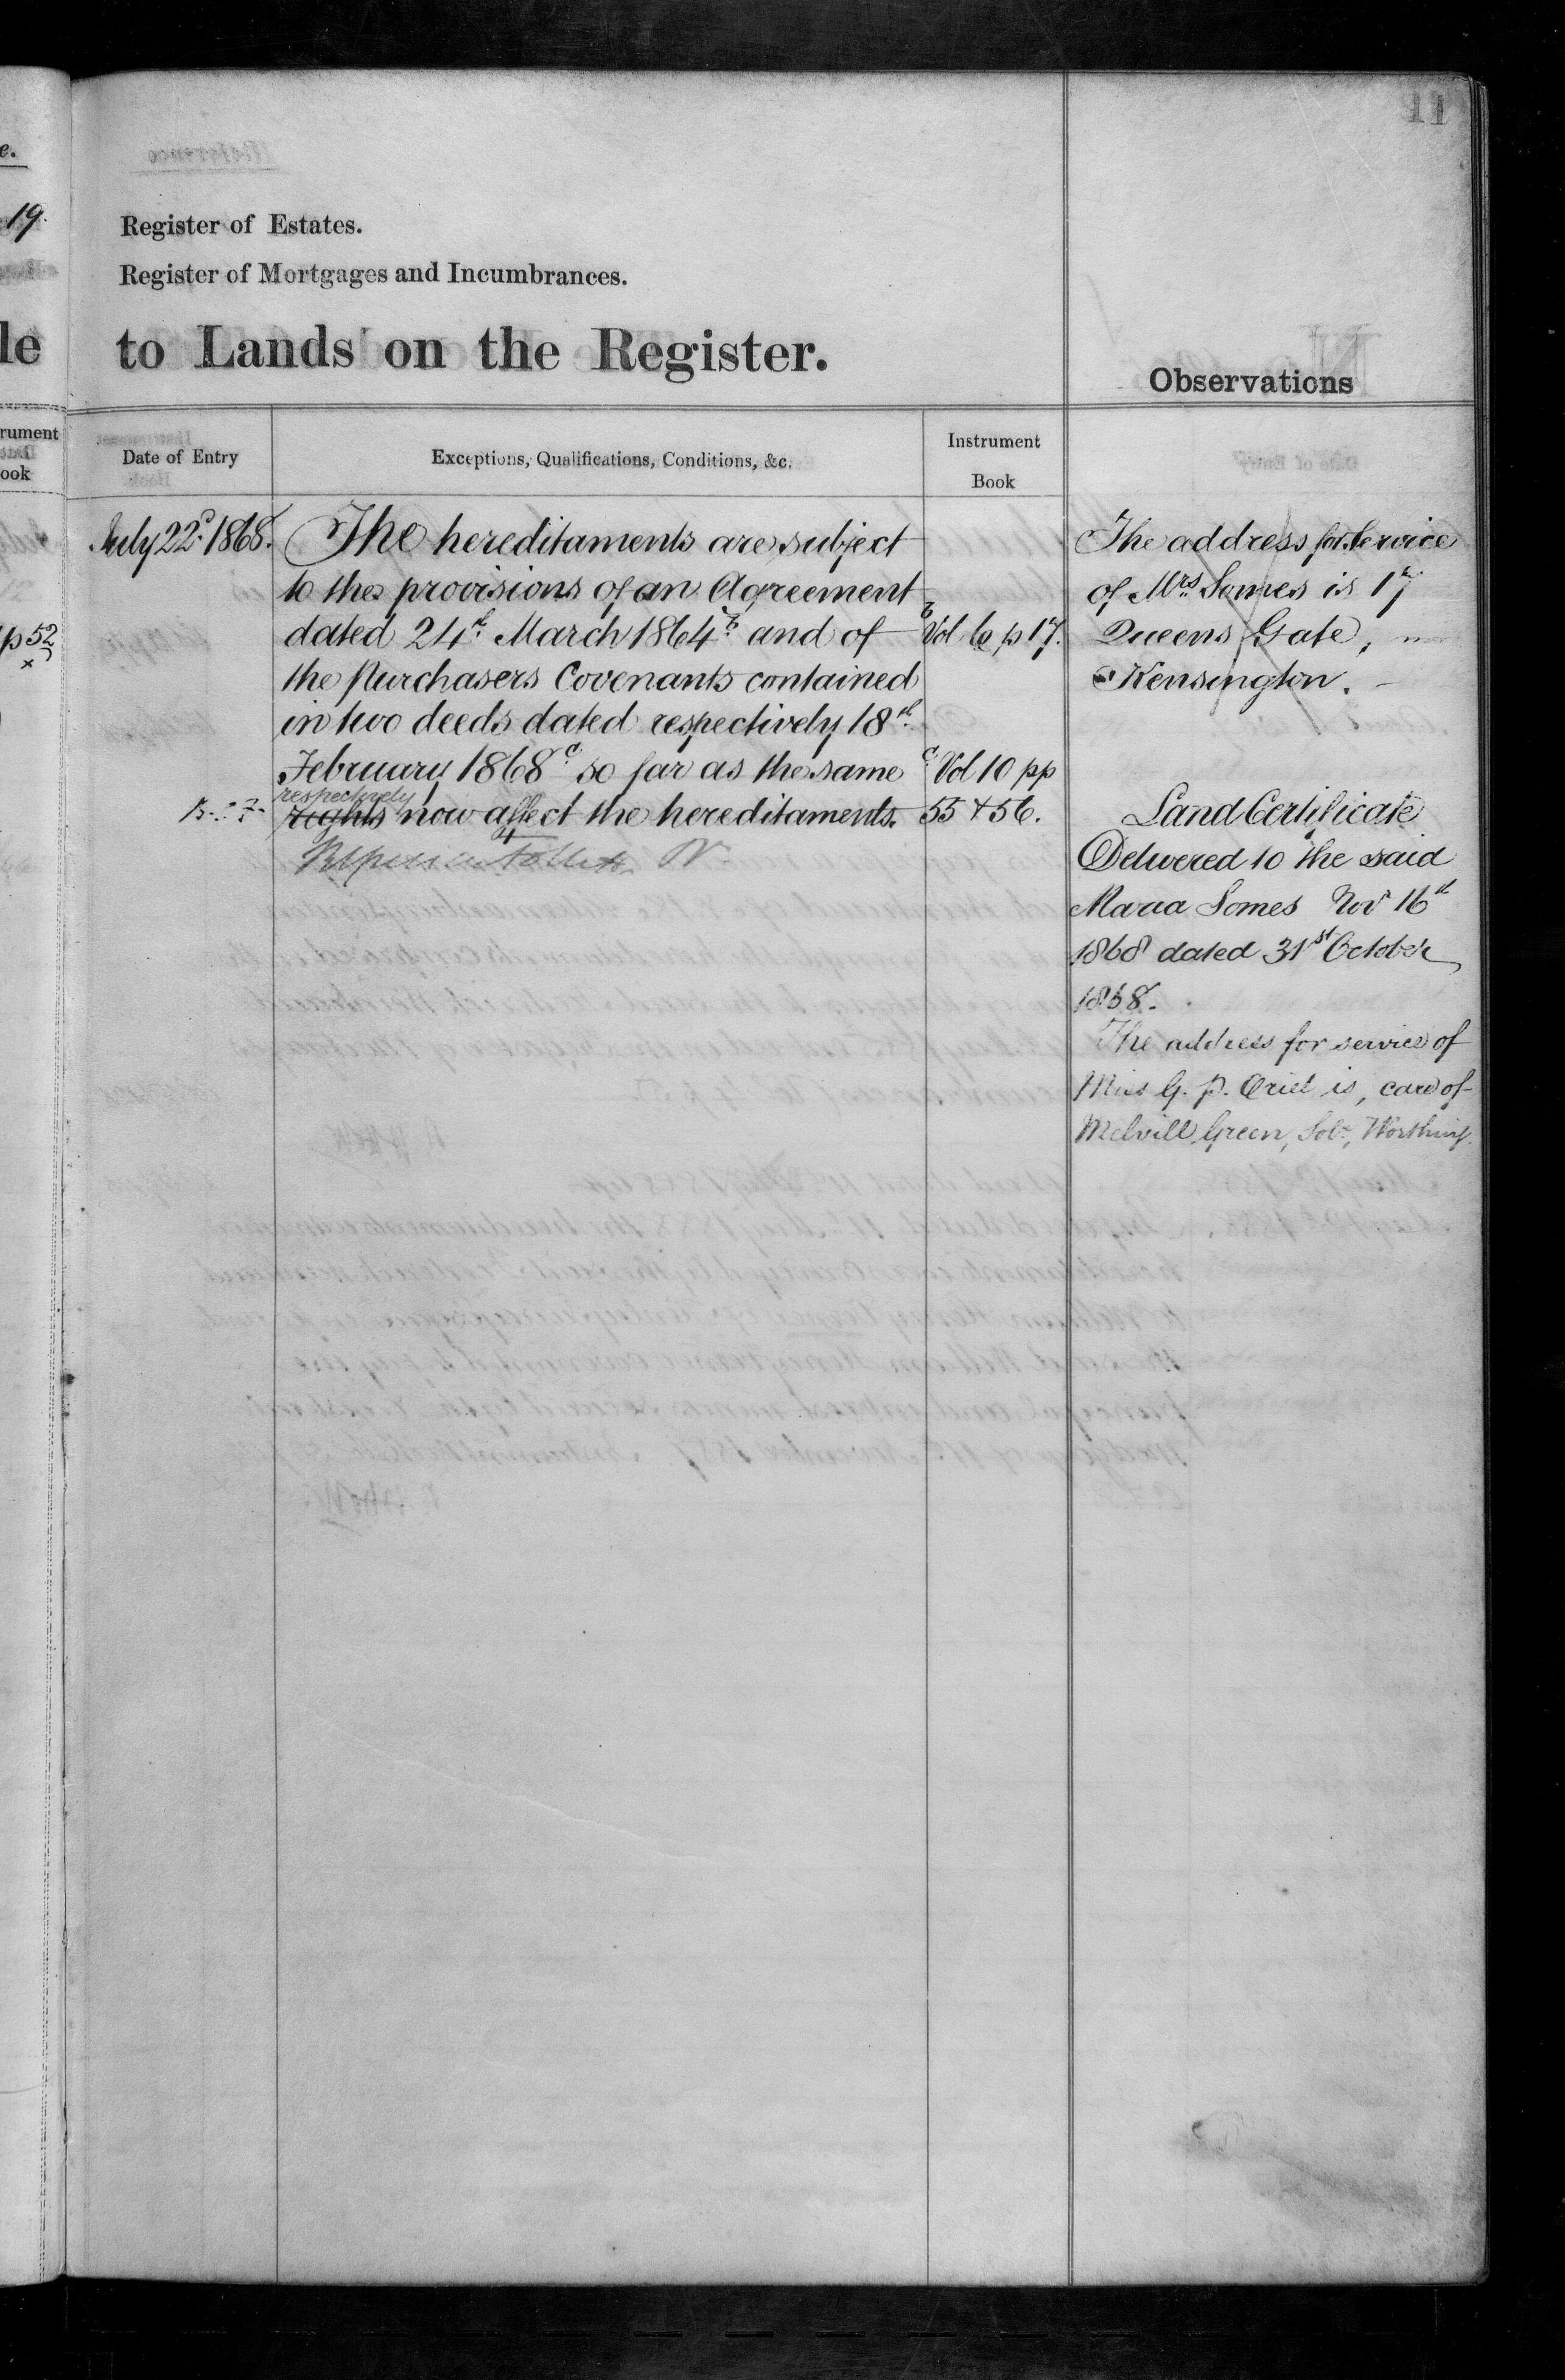 11
Register of Estates.
Register of Mortgages and Incumbrances.
to Lands on the Register.
Observations
Date of Entry
Exceptions, Qualifications, Conditions, &c.
Instrument
Book
July 22d 1868.
The hereditaments are subject
to the provisions of an Agreement
dated 24th March 1864 b and of
the purchasers Covenants contained
in two deeds dated respectively 18th
February 1868 c so far as the same
respectively
rights now affect the hereditaments.
b Vol 6 p 17.
c Vol 10 pp
55 & 56.
The address for Service
of Mrs Somes is 17
Queens Gate,
Kensington.
Land Certificate
Delivered to the said
Maria Somes Nov 16th
1868 dated 31st October
1868.
The address for service of
Miss G. P. Oriel is, care of
Melvill Green, Solr, Worthing.
e.
19.
le
rument
ook
p 52